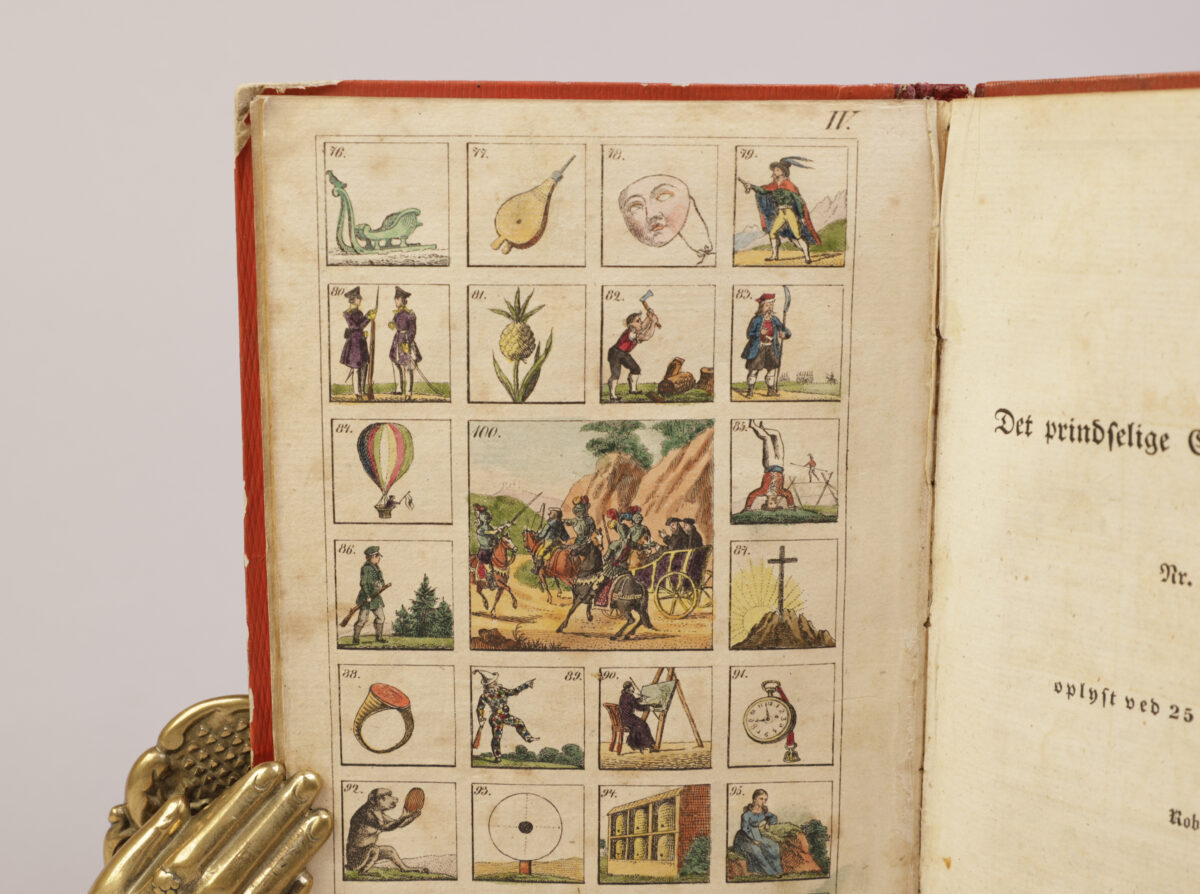 IV.
76. 77. 78. 79.
80. 81. 82. 83.
84. 100. 85.
86. 87.
88. 89. 90. 91.
92. 93. 94. 95.
Det prindselige
Nr.
oplyst ved 25